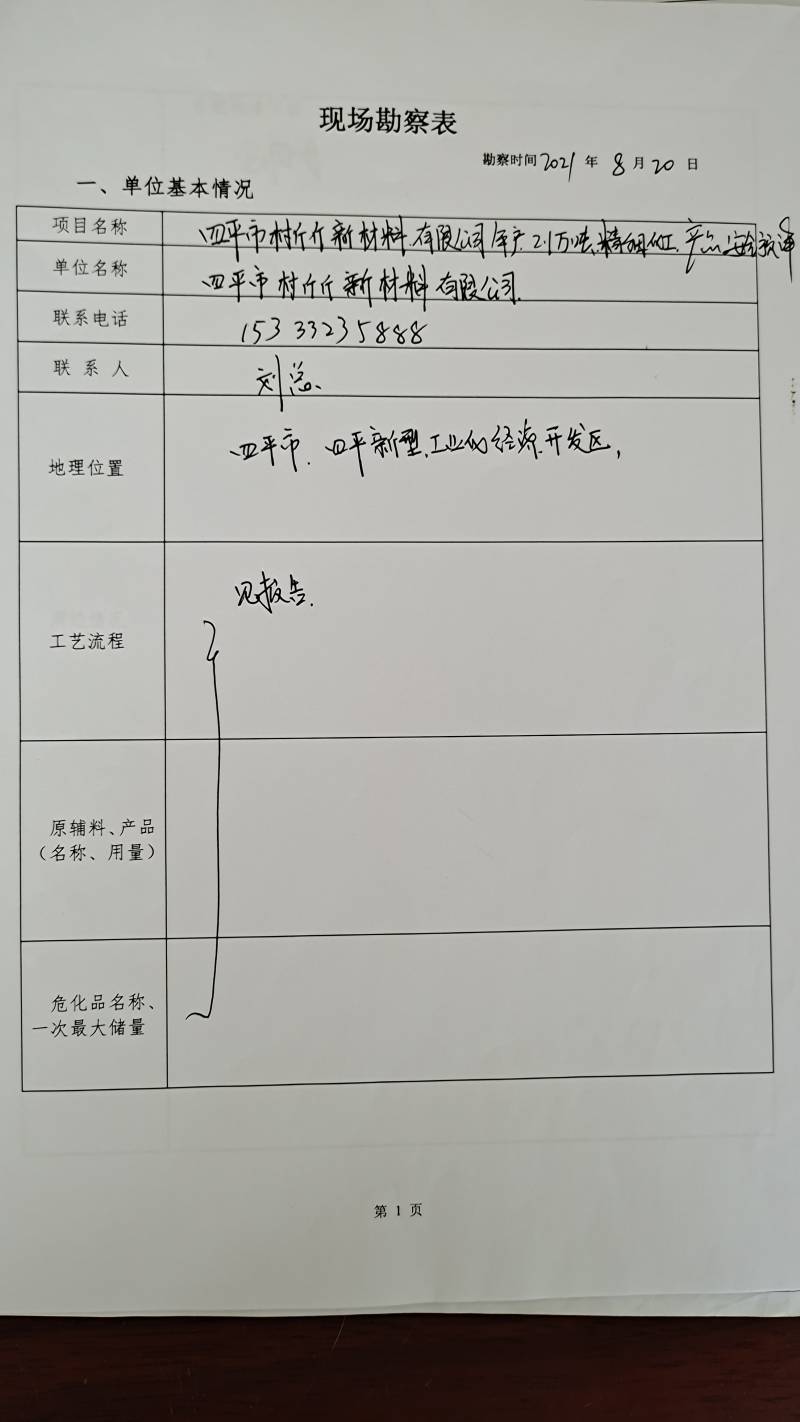 现场勘察表
勘察时间 2021 年 8 月 20 日
一、单位基本情况
项目名称 四平市村竹竹新材料有限公司年产2.1万吨精细化工产品安全预评
单位名称 四平市村竹竹新材料有限公司
联系电话 15333235888
联系人 刘总
地理位置 四平市、四平新型工业化经济开发区,
工艺流程 见报告.
原辅料、产品
(名称、用量)
危化品名称、
一次最大储量
第 1 页